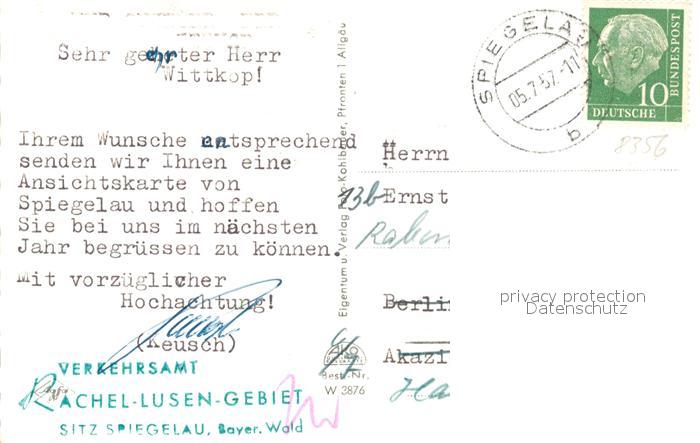 Sehr geehrter Herr
Wittkop!
Ihrem Wunsche entsprechend
senden wir Ihnen eine
Ansichtskarte von
Spiegelau und hoffen
Sie bei uns im nächsten
Jahr begrüssen zu können.
Mit vorzüglicher
Hochachtung!
(Keusch)
VERKEHRSAMT
RACHEL-LUSEN-GEBIET
SITZ SPIEGELAU, Bayer. Wald
Eigentum u. Verlag Ako-Kohlbauer, Pfronten 1 Allgäu
AKO
Best.-Nr.
W 3876
SPIEGELAU
05.7.57.-11
b
DEUTSCHE
BUNDESPOST
10
8356
Herrn
13b Ernst
Berlin
Akazi
privacy protection
Datenschutz